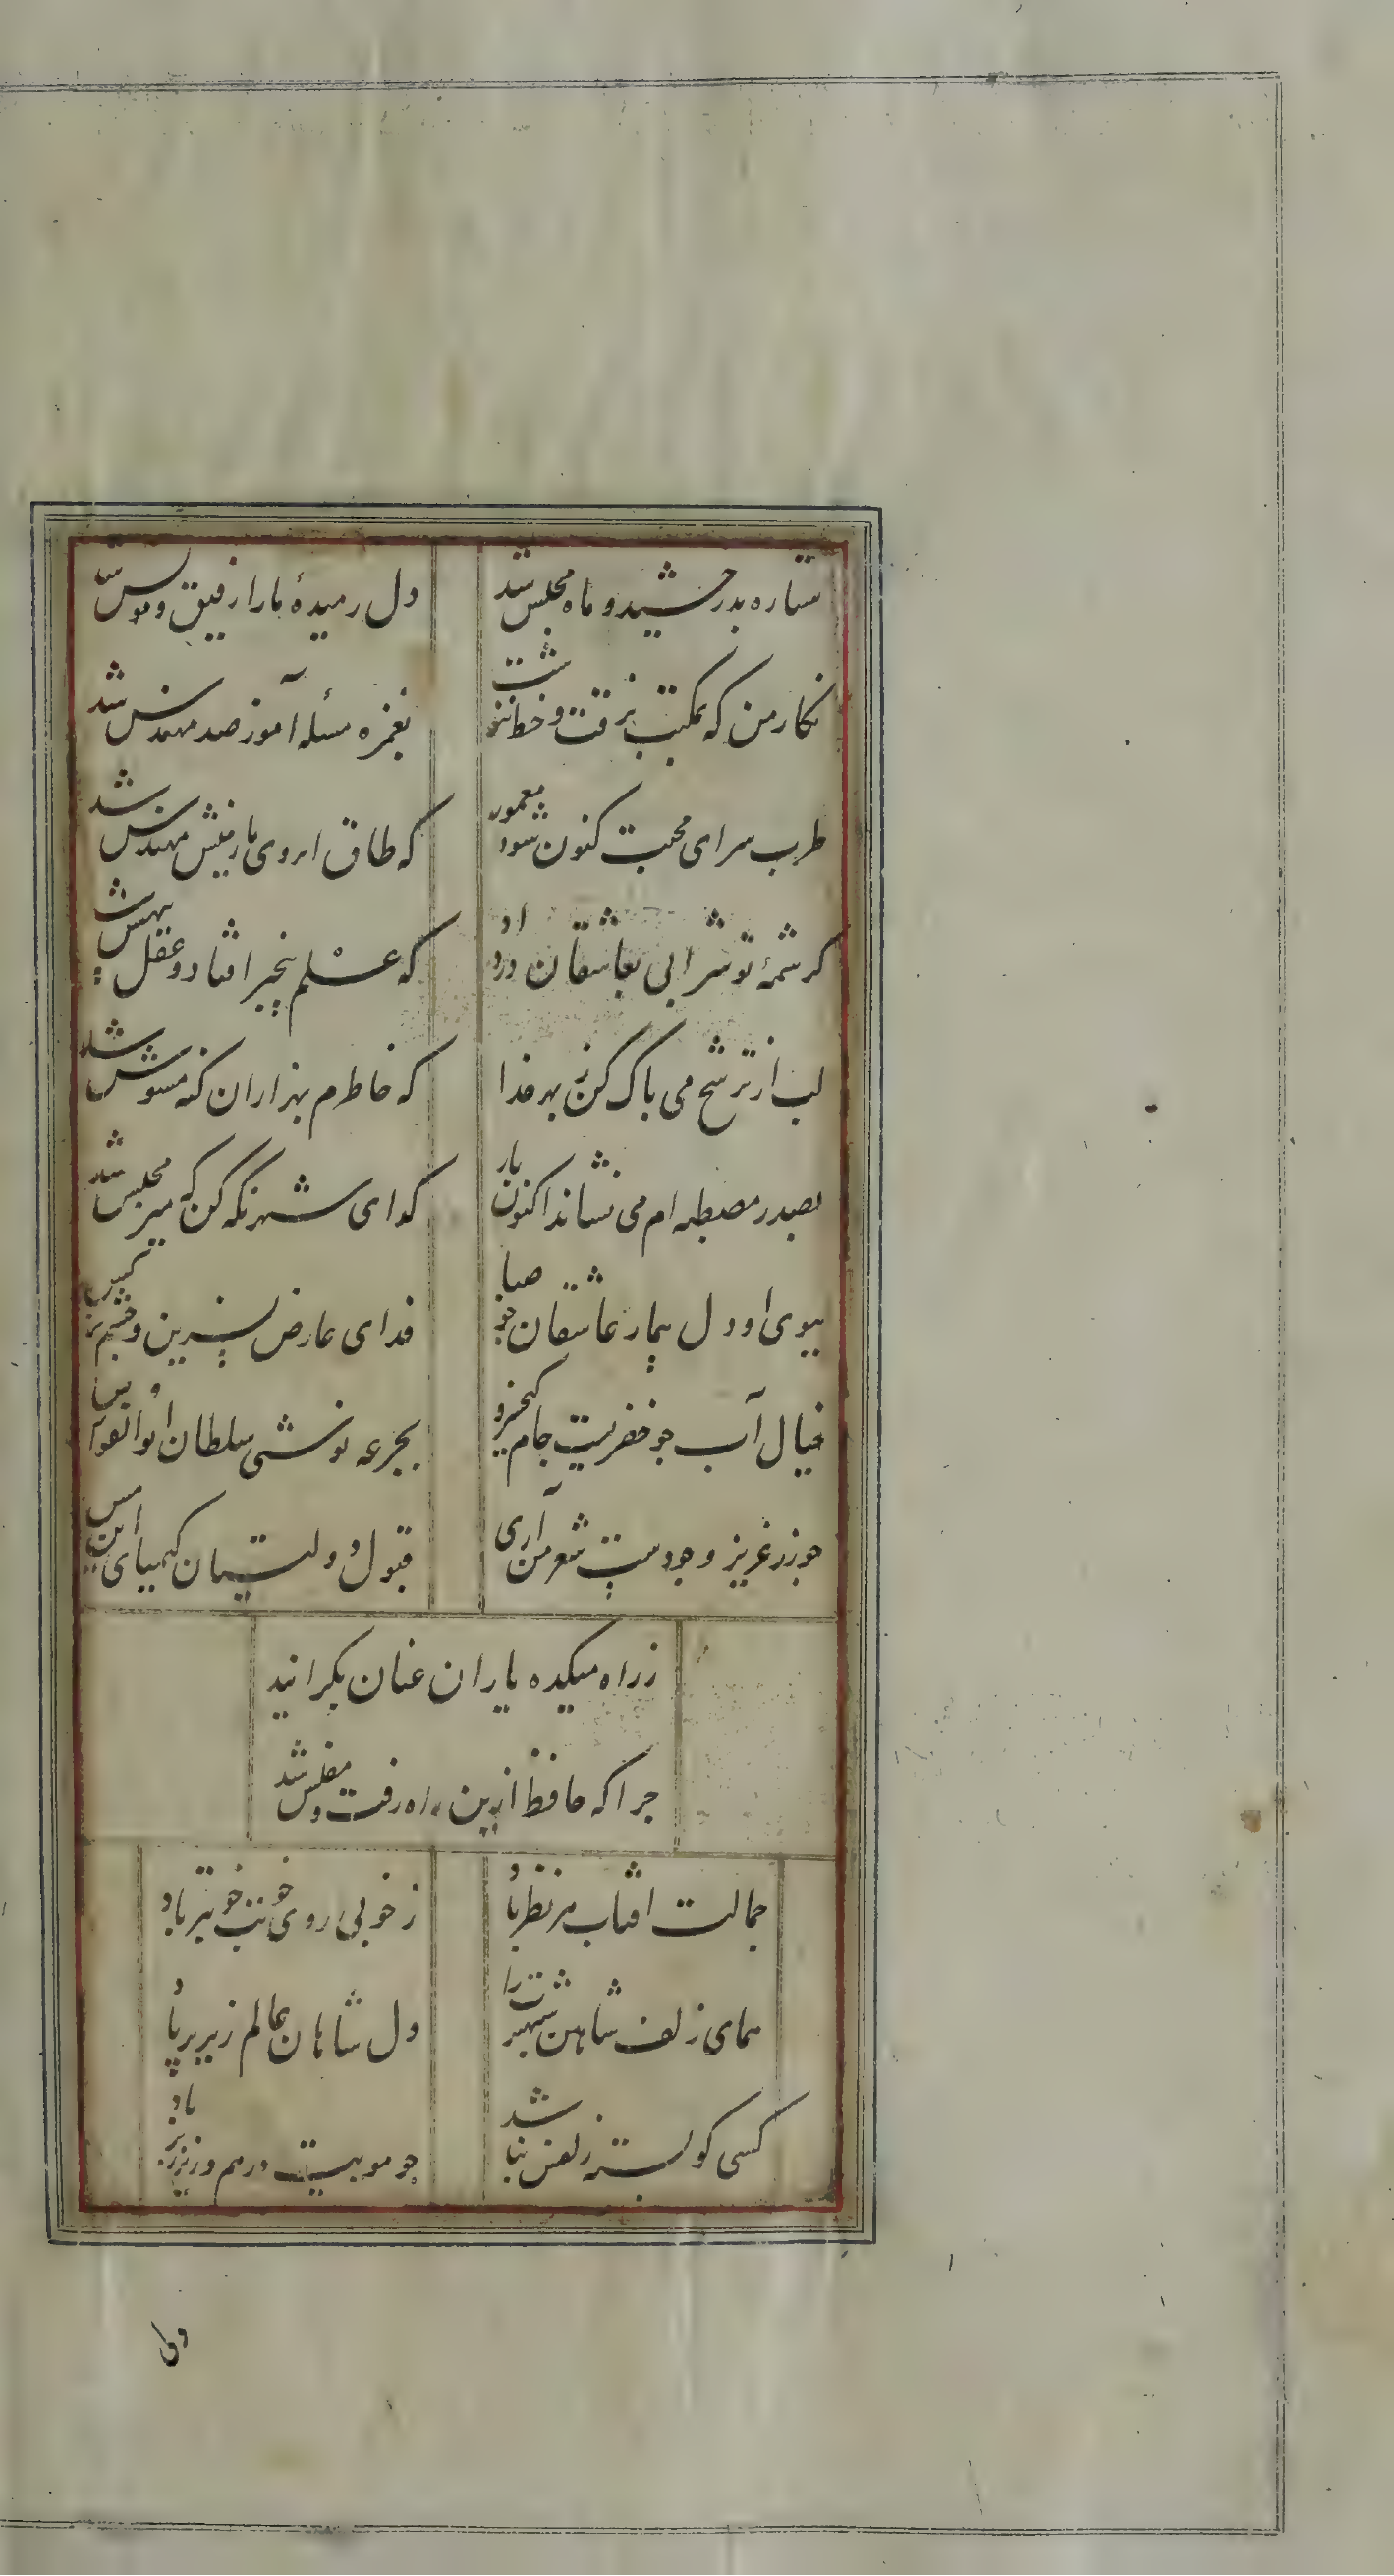 ستاره بدرخشید و ماه مجلس شد
دل رمیدهٔ ما را رفیق و مونس شد
نکار من که بمکتب نرفت و خط ننوشت
بغمزه مسئله آموز صد مهندس شد
طرب سرای محبت کنون شود معمور
که طاق ابروی یار منش مهندس شد
کرشمهٔ تو شرابی بعاشقان در داد
که علم بیخبر افتاد و عقل بیهش شد
لب از ترشح می پاک کن ز بهر خدا
که خاطرم بهزاران کنه مشوش شد
بصدر مصطبه ام می نشاند اکنون یار
کدای شهر نکه کن که میر مجلس شد
ببوی او دل بیمار عاشقان چو صبا
فدای عارض نسرین و چشم نرکس شد
خیال آب خضر بست جام کیخسرو
بجرعه نوشی سلطان ابوالفوارس شد
چو زر عزیز وجودست شعر من آری
قبول دولتیان کیمیای این مس شد
ز راه میکده یاران عنان بکردانید
چرا که حافظ ازین راه رفت و مفلس شد
جمالت افتاب هر نظر باد
ز خوبی روی خوبت خوبتر باد
همای زلف شاهین شهپرت را
دل شاهان عالم زیر پر باد
کسی کو بسته زلفش نباشد
چو مویت درهم و زیر و زبر باد
ولی